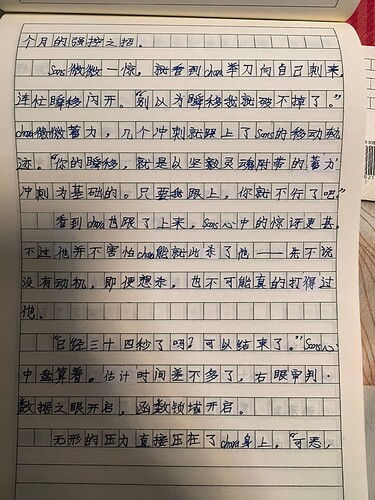 个月的强控之招。
Sans微微一惊，就看到chara举刀向自己刺来，
连忙瞬移闪开。“别以为瞬移我就破不掉了。”
chara微微蓄力，几个冲刺就跟上了Sans的移动轨
迹。“你的瞬移，就是以坚毅灵魂附带的蓄力
冲刺为基础的。只要我跟上，你就不行了吧。”
看到chara也跟了上来，Sans心中的惊讶更甚，
不过他并不害怕chara能就此杀了他——先不说
没有动机，即便想杀，也不可能真的打得过
他。
“已经三十四秒了吗？可以结束了。”Sans心
中盘算着。估计时间差不多了，右眼审判·
数据之眼开启，函数领域开启。
无形的压力直接压在了chara身上，“可恶，